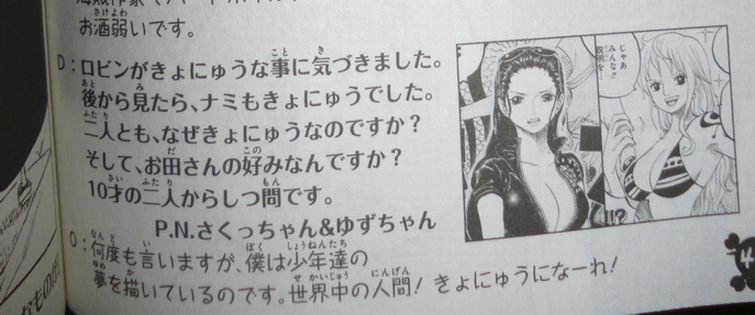 お酒弱いです。
D:ロビンがきょにゅうな事に気づきました。
後から見たら、ナミもきょにゅうでした。
二人とも、なぜきょにゅうなのですか?
そして、お田さんの好みなんですか?
10才の二人からしつ問です。
P.N.さくっちゃん&ゆずちゃん
O:何度も言いますが、僕は少年達の
夢を描いているのです。世界中の人間!きょにゅうになーれ!
じゃあ
みんな!!
説明を…
!!?